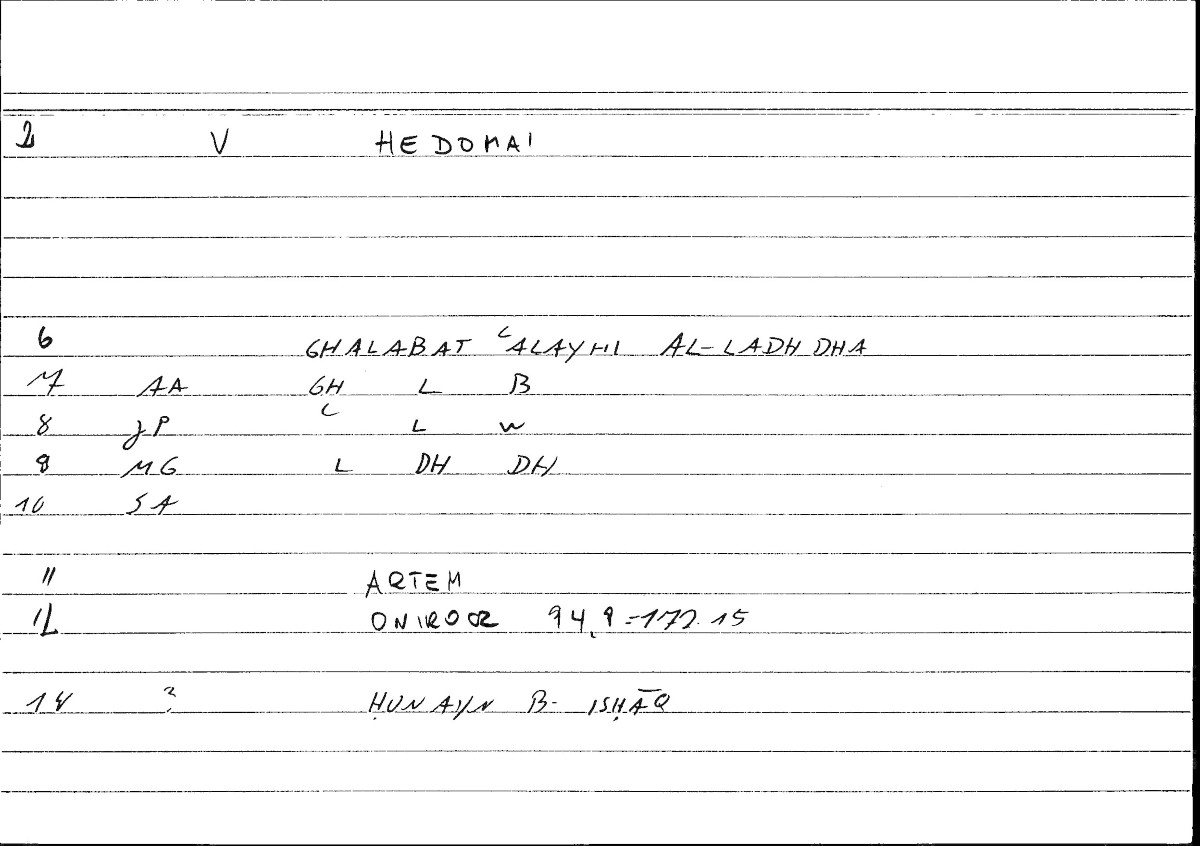 2 V HEDOMAI
6 GHALABAT ʿALAYHI AL-LADHDHA
7 AA GH L B
8 JP ʿ L W
9 MG L DH DH
10 SA
11 ARTEM
12 ONIROCR 94,9=172.15
14 ? ḤUNAYN B- ISḤĀQ